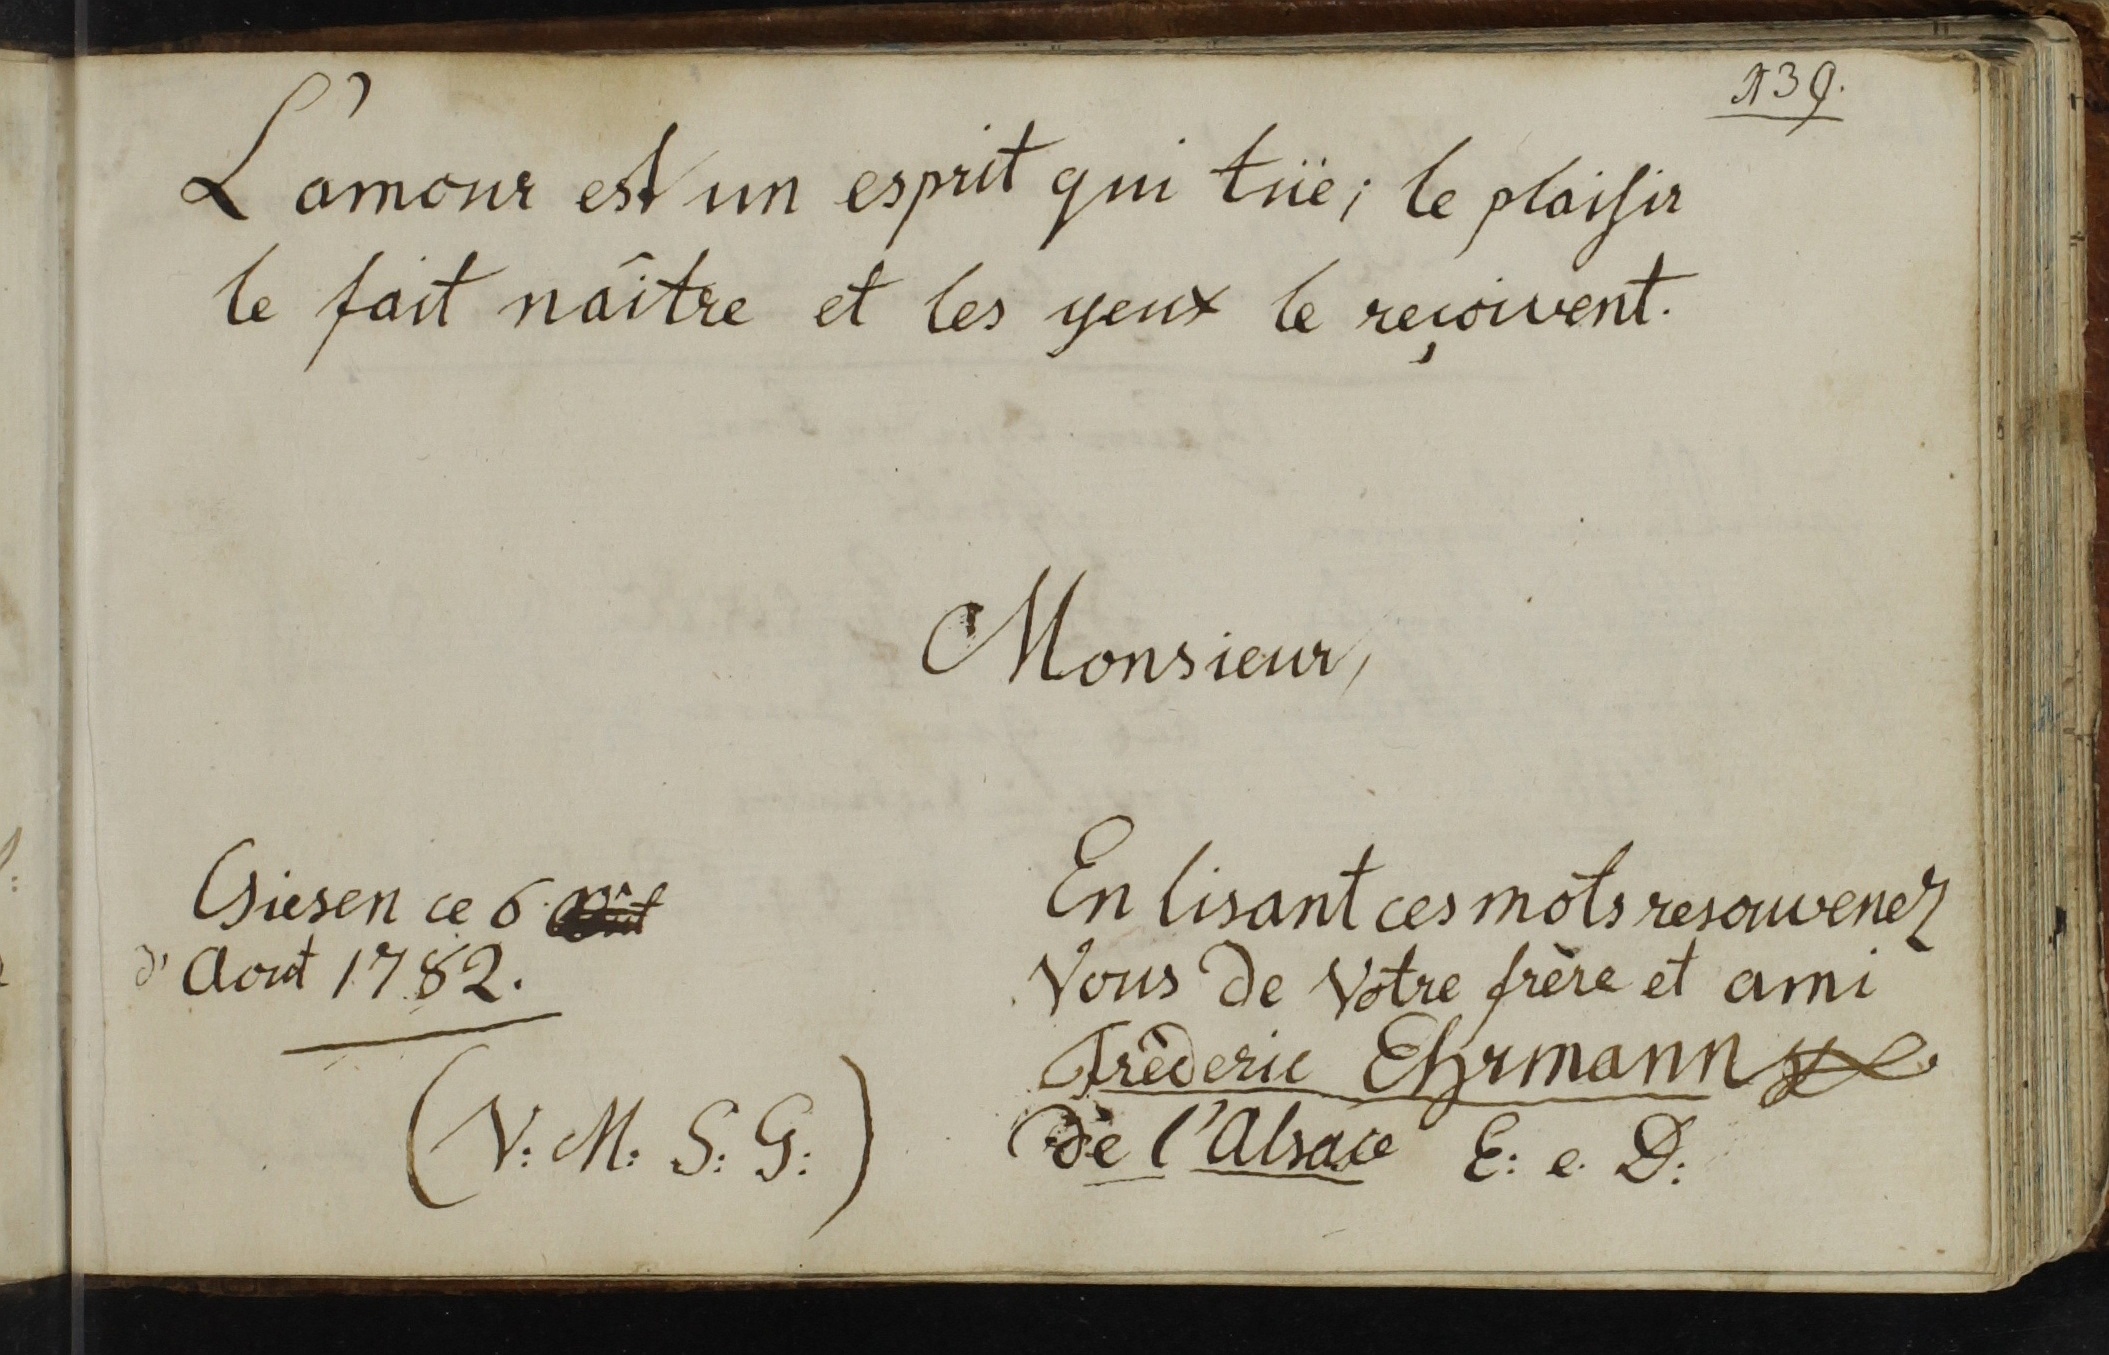 139.
L'amour est un esprit qui tüe; le plaisir
le fait naître et les yeux le reçoivent.
Monsieur,
Giesen ce 6.
d'Aout 1782.
(V: M: S: G:)
En lisant ces mots resouvenez
Vous de Votre frère et ami
Frèderic Ehrmann
dè l'Alsace E: e. D: